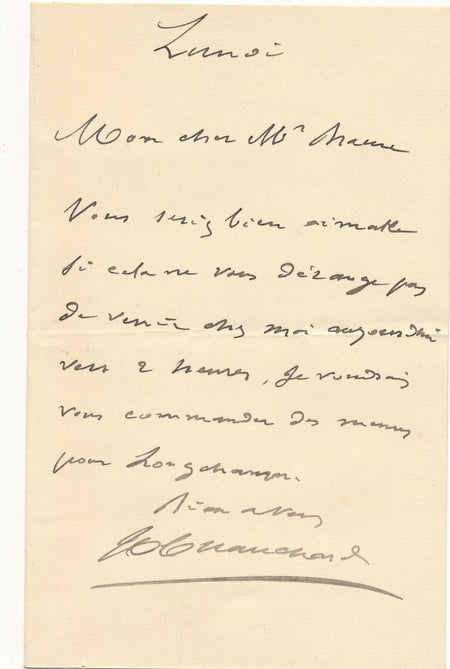 Lundi
Mon cher Mr
Vous seriez bien aimable
si cela ne vous dérange pas
de venir chez moi aujourd'hui
vers 2 heures, Je voudrais
vous commander des menus
pour Longchamps.
Bien à vous